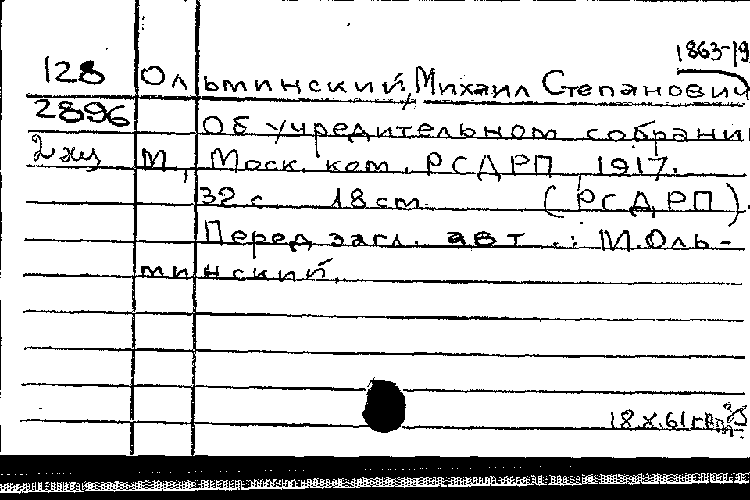 1863-19
128 Ольминский, Михаил Степанович
2896
Об учредительном собрании
2 экз М, Моск. ком. РСДРП, 1917.
32 с 18 cm. (РСДРП).
Перед загл. авт.: М. Оль-
минский.
18.X.61г